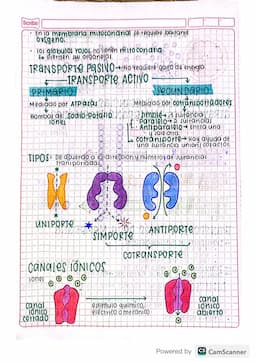 • En la membrana mitocondrial se requiere bastante
oxígeno.
• Los glóbulos rojos no tienen mitocondria
TRANSPORTE PASIVO → No requiere gasto de energía
TRANSPORTE ACTIVO
PRIMARIO
SECUNDARIO
Mediado por ATPasas
Mediado por cotransportadores
Bomba de sodio-potasio
iones
simple → 1 sustancia
Paralelo → 2 sustancias
Antiparalelo → Entra una
y sale otra
cotransporte → Hay ayuda de
una sustancia
TIPOS: De acuerdo a dirección y número de sustancias
transportadas.
UNIPORTE
SIMPORTE
ANTIPORTE
COTRANSPORTE
CANALES IÓNICOS
iones
canal
iónico
cerrado
estímulo químico,
eléctrico o mecánico
canal
iónico
abierto
Powered by CS CamScanner